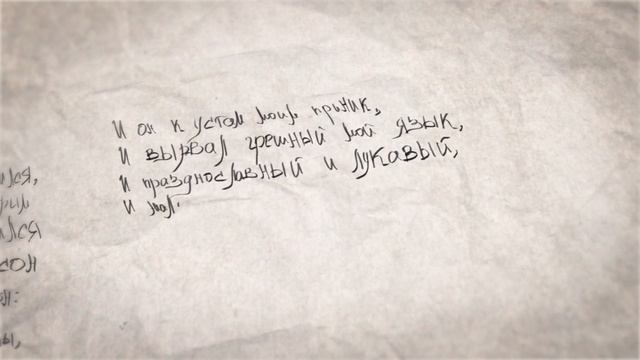 И он к устам моим приник,
И вырвал грешный мой язык,
И празднославный и лукавый,
И